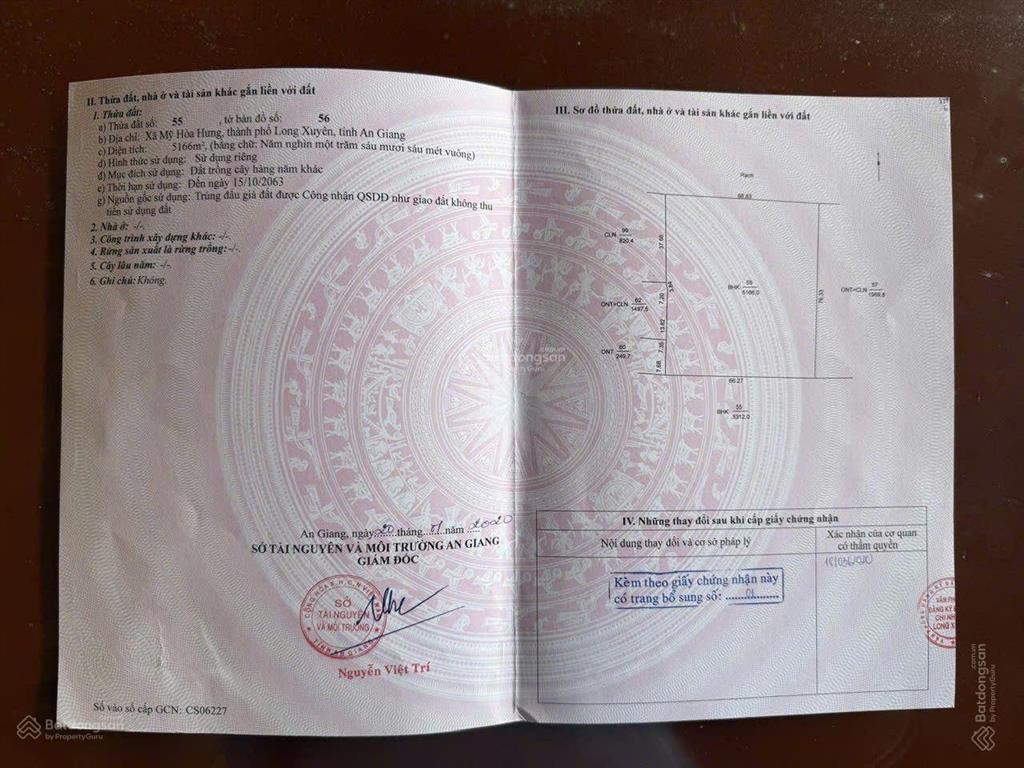 II. Thửa đất, nhà ở và tài sản khác gắn liền với đất
1. Thửa đất:
a) Thửa đất số: 55 , tờ bản đồ số: 56
b) Địa chỉ: Xã Mỹ Hòa Hưng, thành phố Long Xuyên, tỉnh An Giang
c) Diện tích: 5166m², (bằng chữ: Năm nghìn một trăm sáu mươi sáu mét vuông)
d) Hình thức sử dụng: Sử dụng riêng
đ) Mục đích sử dụng: Đất trồng cây hàng năm khác
e) Thời hạn sử dụng: Đến ngày 15/10/2063
g) Nguồn gốc sử dụng: Trúng đấu giá đất được Công nhận QSDĐ như giao đất không thu
tiền sử dụng đất
2. Nhà ở: -/-.
3. Công trình xây dựng khác: -/-.
4. Rừng sản xuất là rừng trồng: -/-.
5. Cây lâu năm: -/-.
6. Ghi chú: Không.
An Giang, ngày 20 tháng 01 năm 2020
SỞ TÀI NGUYÊN VÀ MÔI TRƯỜNG AN GIANG
GIÁM ĐỐC
SỞ
TÀI NGUYÊN
VÀ MÔI TRƯỜNG
TỈNH AN GIANG
Nguyễn Việt Trí
Số vào sổ cấp GCN: CS06227
III. Sơ đồ thửa đất, nhà ở và tài sản khác gắn liền với đất
Rạch
68.83
CLN 99
820,4
37.68
ONT+CLN 62
1497,5
7.20
5.84
13.82
ONT 60
249,7
7.35
7.68
BHK 55
5166,0
76.33
ONT+CLN 57
1969,8
66.27
BHK 55
5312,0
IV. Những thay đổi sau khi cấp giấy chứng nhận
Nội dung thay đổi và cơ sở pháp lý
Xác nhận của cơ quan
có thẩm quyền
Kèm theo giấy chứng nhận này
có trang bổ sung số: 01
VĂN PH
ĐĂNG KÝ Đ
CHI NH
LONG X
Batdongsan.com.vn
by PropertyGuru
Batdongsan
by PropertyGuru
Batdongsan.com.vn
by PropertyGuru